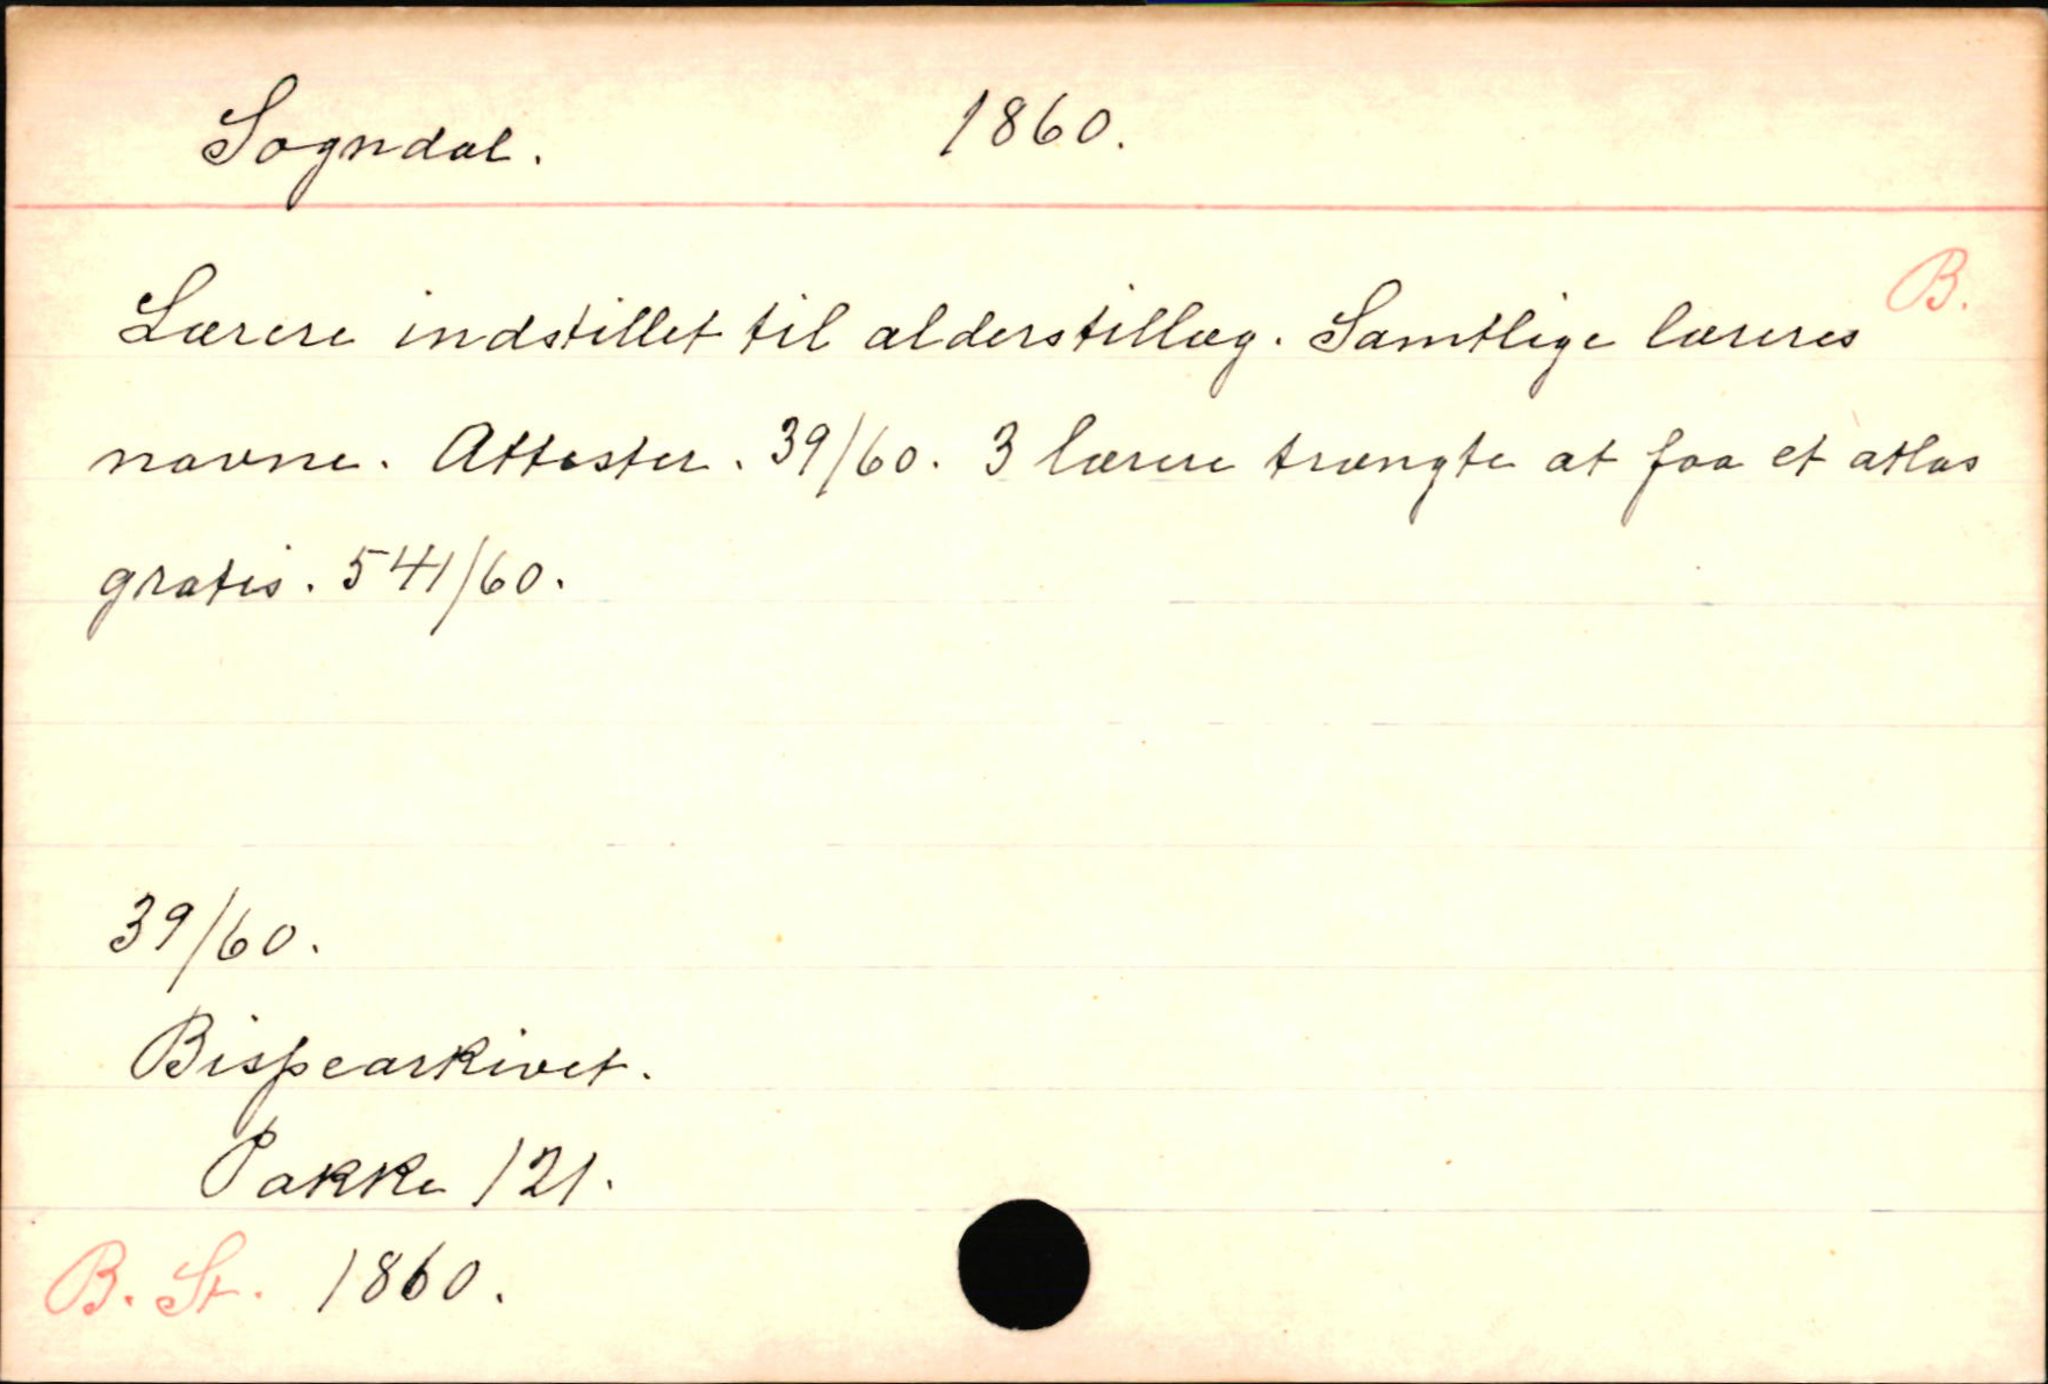 Sogndal. 1860.
B.
Lærere indstillet til alderstillæg. Samtlige læreres
navne. Attester. 39/60. 3 lærere trængte at faa et atlas
gratis. 541/60.
39/60.
Bispearkivet.
Pakke 121.
B. St. 1860.